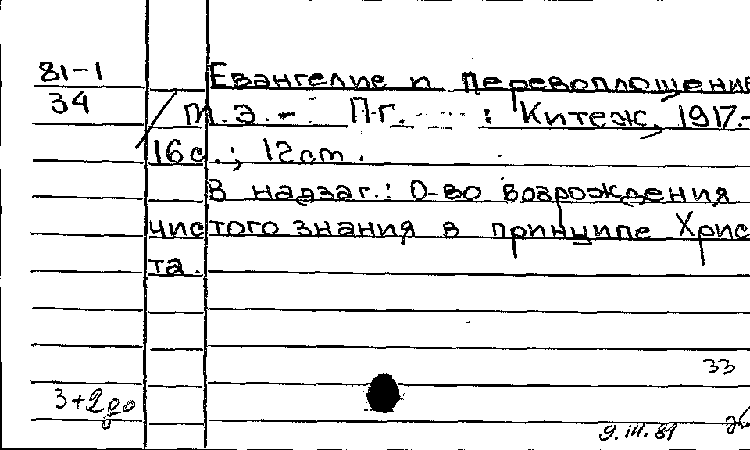 81-1
34
Евангелие и перевоплощение
/ Т.Э. - П-г. : Китеж, 1917.-
16 с. ; 12 cm.
В надзаг.: О-во возрождения
чистого знания в принципе Хрис
та.
33
3+2
9.III.81